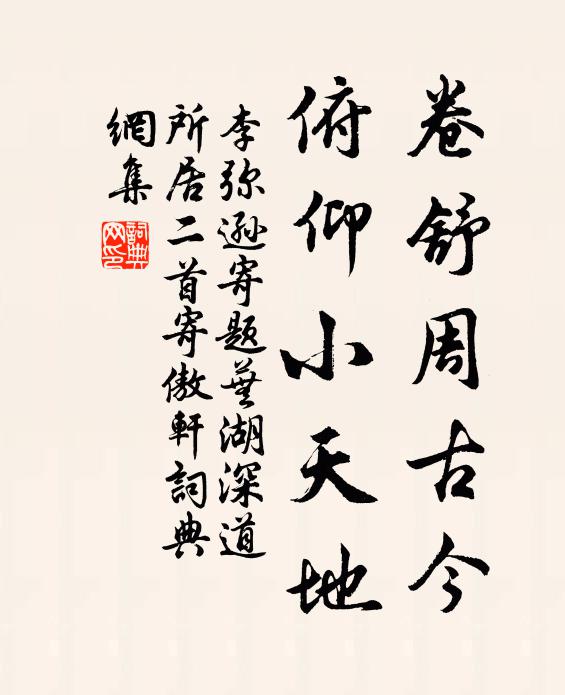 卷舒周古今
俯仰小天地
李弥遜寄題蕪湖深道
所居二首寄傲軒詞典
網集
詞典
网印